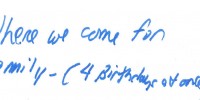 here we come for
amily - (4 Birthdays at one